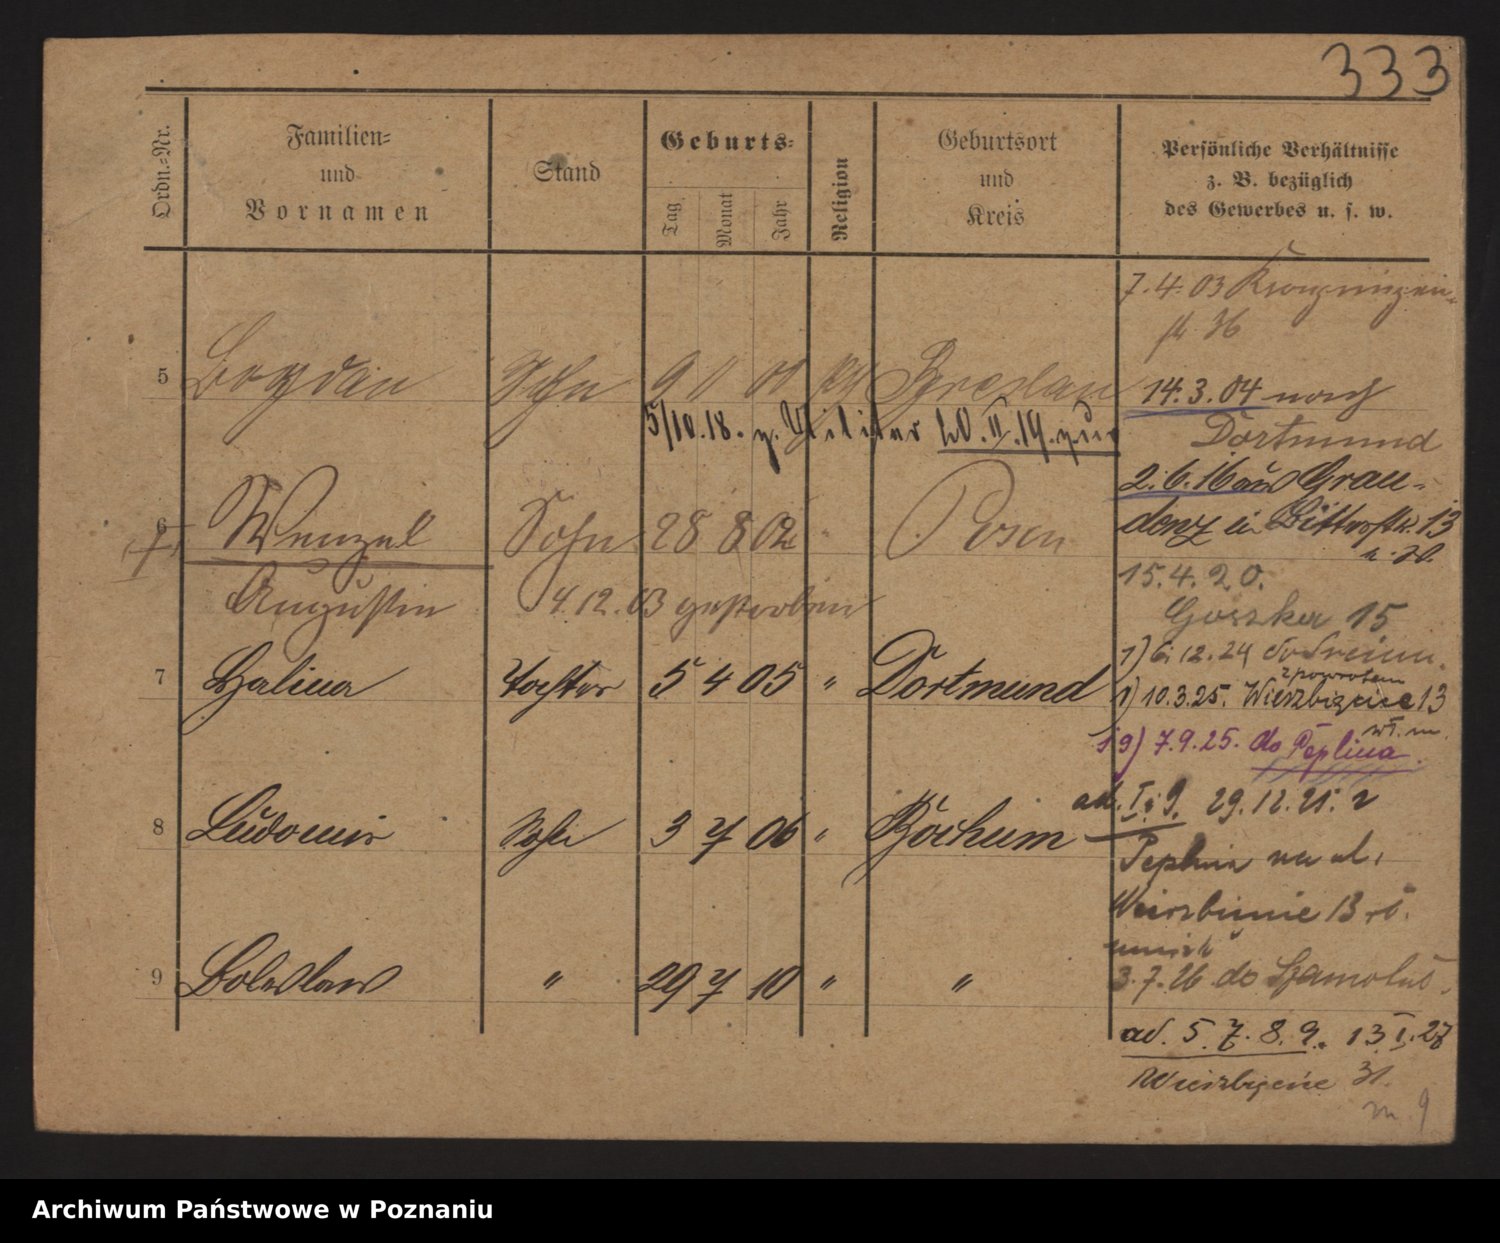 333
Ordn.-Nr.
Familien-
und
Vornamen
Stand
Geburts-
Tag
Monat
Jahr
Religion
Geburtsort
und
Kreis
Persönliche Verhältnisse
z. B. bezüglich
des Gewerbes u. s. w.
7.4.03
36
5 Bogdan Sohn 9 11 00 kth Breslau
14.3.04 nach
Dortmund
5/10.18. z. Militär 20.II.19. zur
2.6.16 aus Grau-
denz in Bitterstr. 13
6 Wenzel Sohn 28 8 02 " Posen
15.4.20.
Augustin 4.12.03 gestorben
Goszka 15
7 Halina Tochter 5 4 05 " Dortmund
1) 6.12.24 do Śremu.
z powrotem
1) 10.3.25. Wierzbięcice 13
wł. m.
i 9) 7.9.25. do Peplina.
ad. I i 9. 29.12.25. z
8 Ludomir Sohn 3 7 06 " Bochum
Peplina na ul.
13
9 Boleslaw " 29 7 10 " "
3.7.26 do Szamotuł.
ad. 5. 7. 8. 9. 13.I.27
Wierzbięcice 31.
m. 9
Archiwum Państwowe w Poznaniu